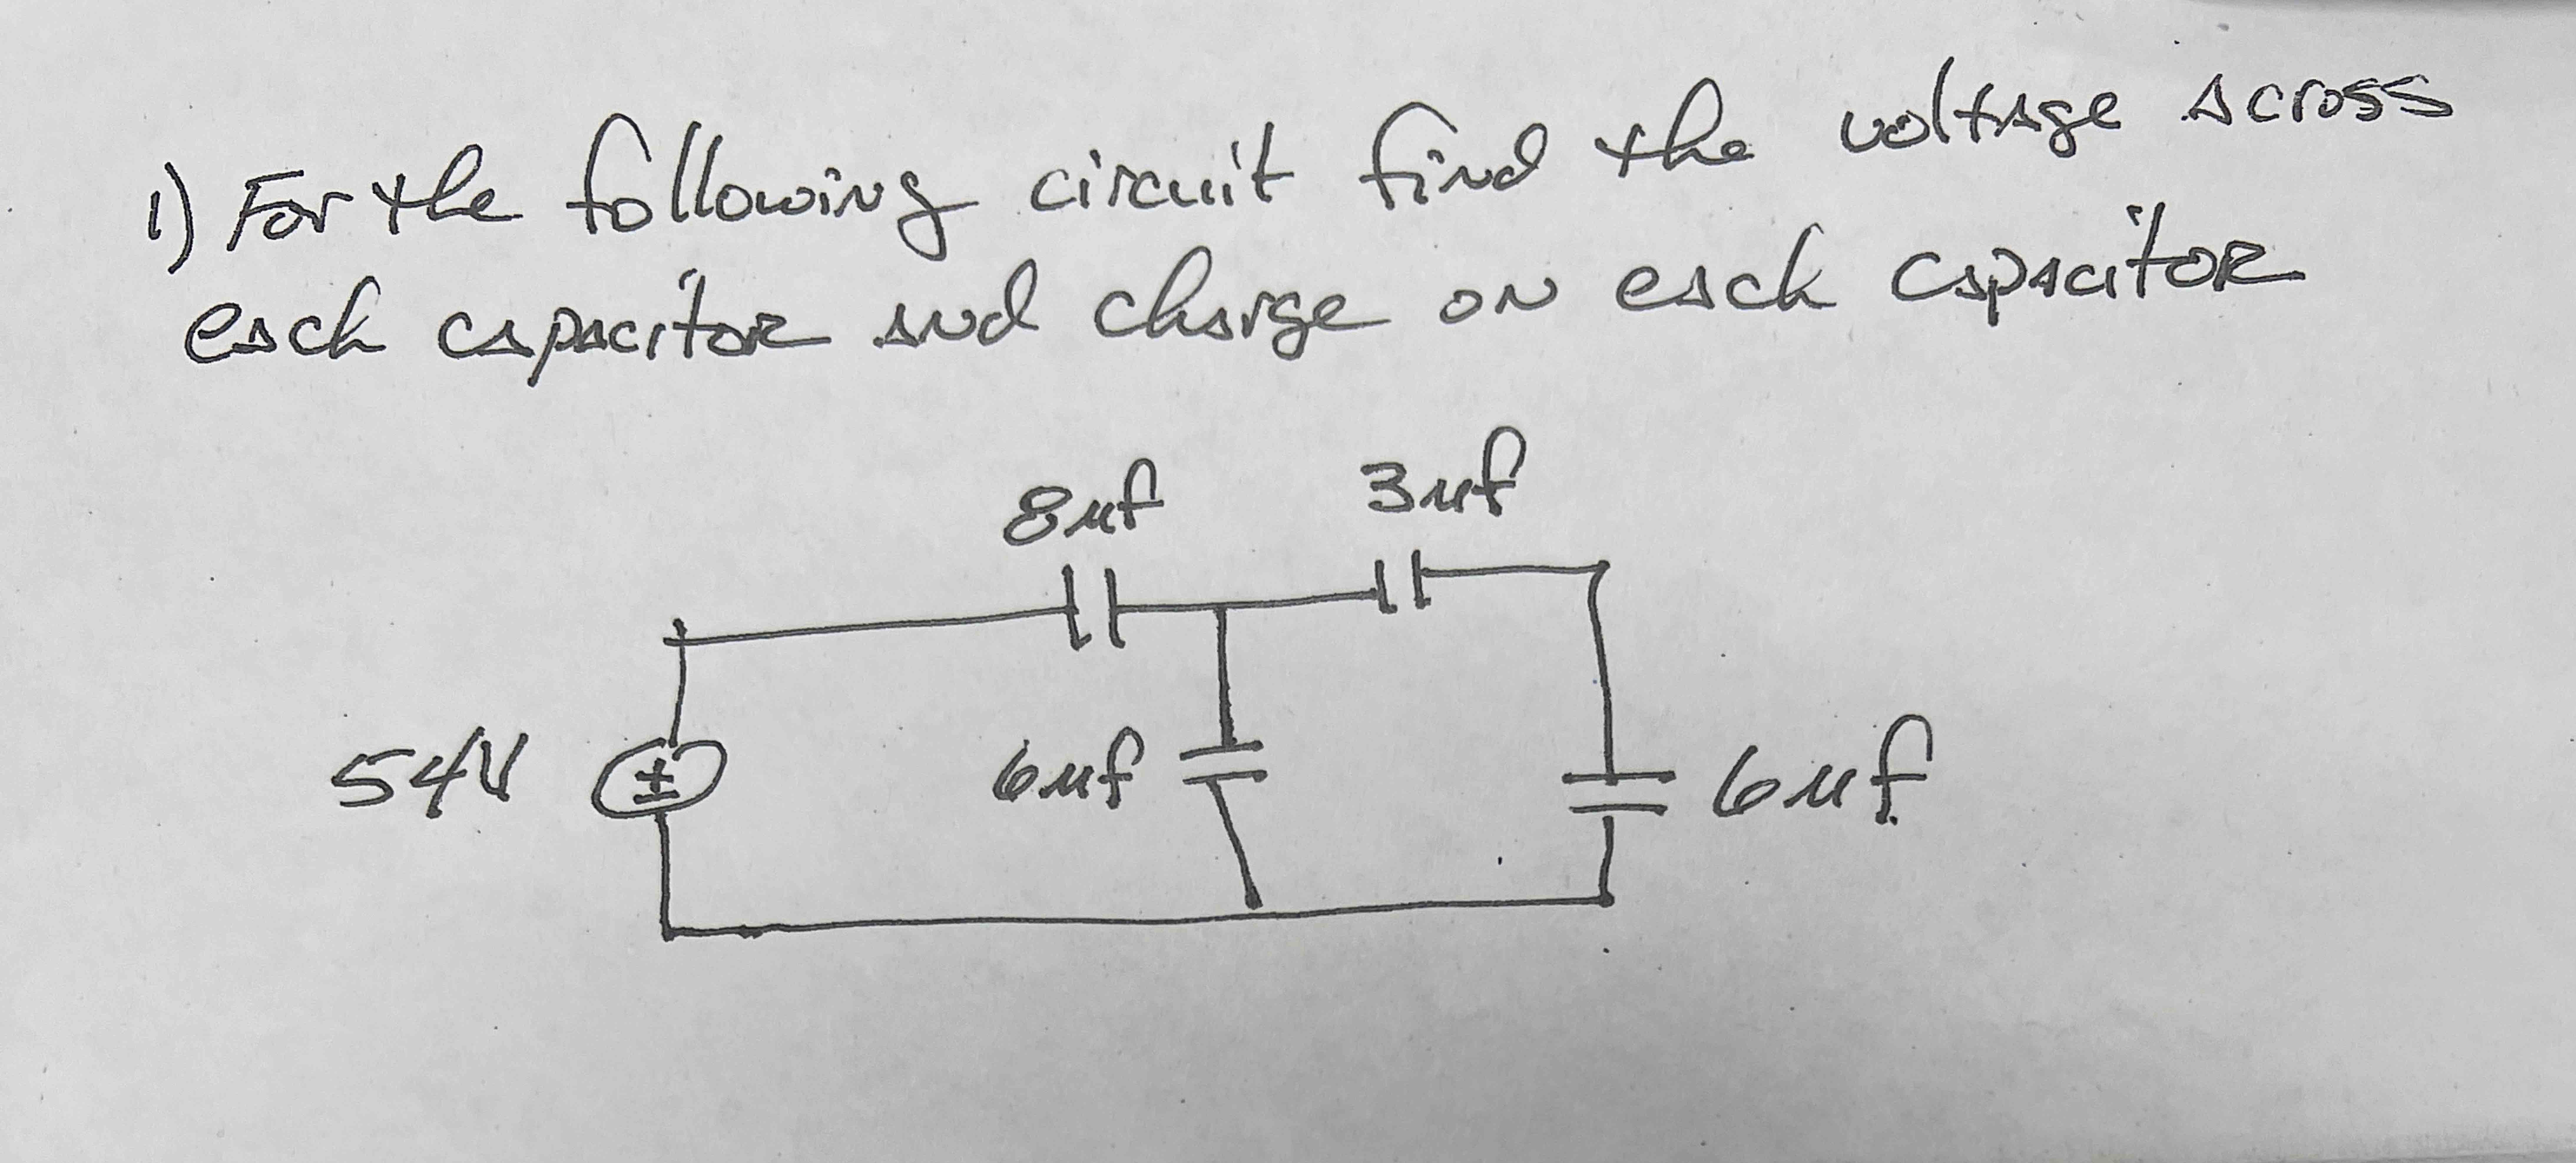 1) For the following circuit find the voltage across
each capacitor and charge on each capacitor
8uf
3uf
54V
±
6uf
6uf